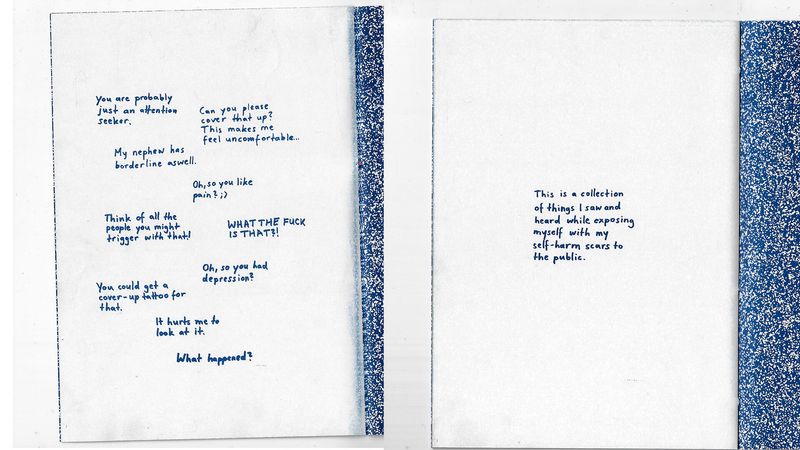 You are probably
just an attention
seeker.
Can you please
cover that up?
This makes me
feel uncomfortable...
My nephew has
borderline aswell.
Oh, so you like
pain? ;)
Think of all the
people you might
trigger with that!
WHAT THE FUCK
IS THAT?!
Oh, so you had
depression?
You could get a
cover-up tattoo for
that.
It hurts me to
look at it.
What happened?
This is a collection
of things I saw and
heard while exposing
myself with my
self-harm scars to
the public.